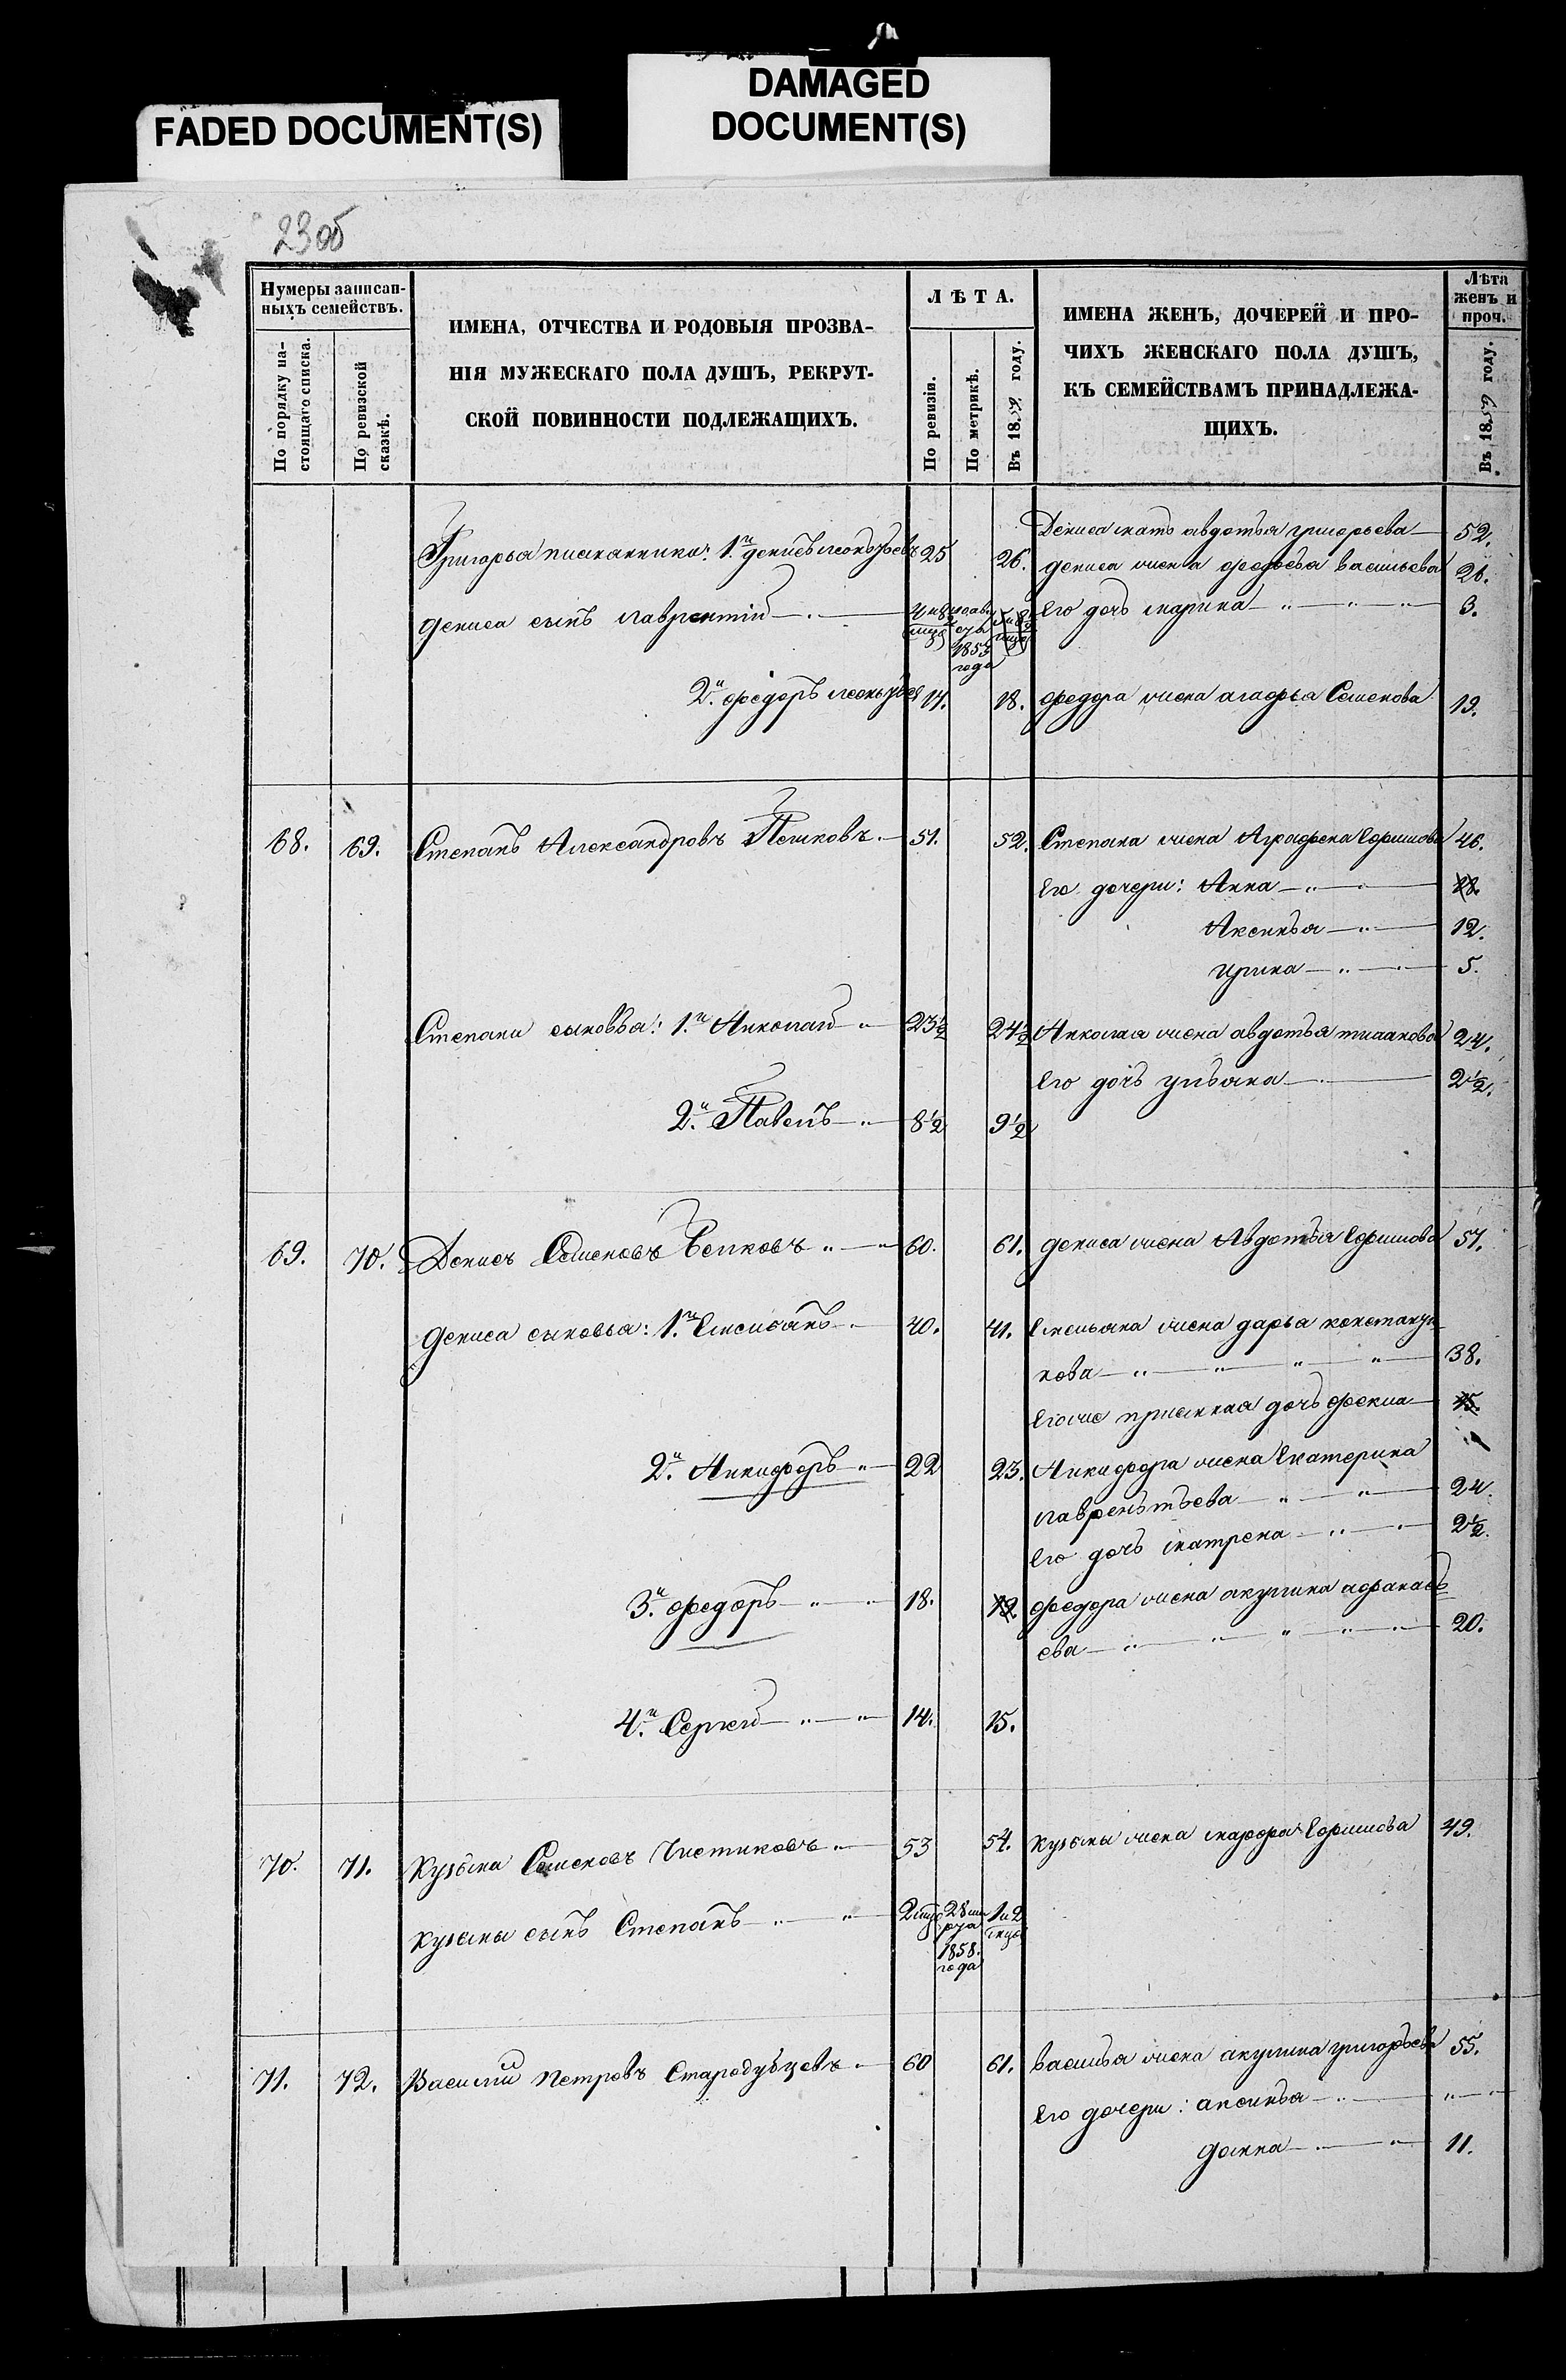 FADED DOCUMENT(S)
DAMAGED
DOCUMENT(S)
23об
Нумеры записан-
ныхъ семействъ.
По порядку на-
стоящаго списка.
По ревизской
сказкѣ.
ИМЕНА, ОТЧЕСТВА И РОДОВЫЯ ПРОЗВА-
НІЯ МУЖЕСКАГО ПОЛА ДУШЪ, РЕКРУТ-
СКОЙ ПОВИННОСТИ ПОДЛЕЖАЩИХЪ.
ЛѢТА.
По ревизіи.
По метрикѣ.
Въ 1859 году.
ИМЕНА ЖЕНЪ, ДОЧЕРЕЙ И ПРО-
ЧИХЪ ЖЕНСКАГО ПОЛА ДУШЪ,
КЪ СЕМЕЙСТВАМЪ ПРИНАДЛЕЖА-
ЩИХЪ.
Лѣта
женъ и
проч.
Въ 1859 году.
Дениса мать авдотья григорьева 52.
Григорья племянники: 1й денисъ 25 26. дениса жена федосья васильева 26.
дениса сынъ лаврентій 1853 года Его дочь марина 3.
2й федоръ 17. 18. федора жена агафья Семенова 19.
68. 69. Степанъ Александровъ Пешковъ 51. 52. Степана жена Аграфена Ефимова 46.
Его дочери: Анна 18.
Аксинья 12.
ирина 5.
Степана сыновья: 1й Николай 23½ 24½ Николая жена авдотья 24.
Его дочь ульяна 2½.
2й Павелъ 8½ 9½
69. 70. Денисъ Семеновъ 60. 61. дениса жена Авдотья Ефимова 57.
дениса сыновья: 1й Емельянъ 40. 41. Емельяна жена дарья константи-
нова 38.
Егоже дочь 15.
2й Никифоръ 22 23. Никифора жена Екатерина
лаврентьева 24.
Его дочь матрена 2½.
3й федоръ 18. 19. федора жена акулина афанась
ева 20.
4й Сергей 14. 15.
70. 71. Кузьма Семеновъ Чистиковъ 53 54. кузьмы жена марфа Ефимова 49.
кузьмы сынъ Степанъ 2 мца 28 1858. года 1 и 2 мца
71. 72. Василий Петровъ Стародубцевъ 60 61. василья жена акулина григорьева 55.
Его дочери: аксинья
домна 11.